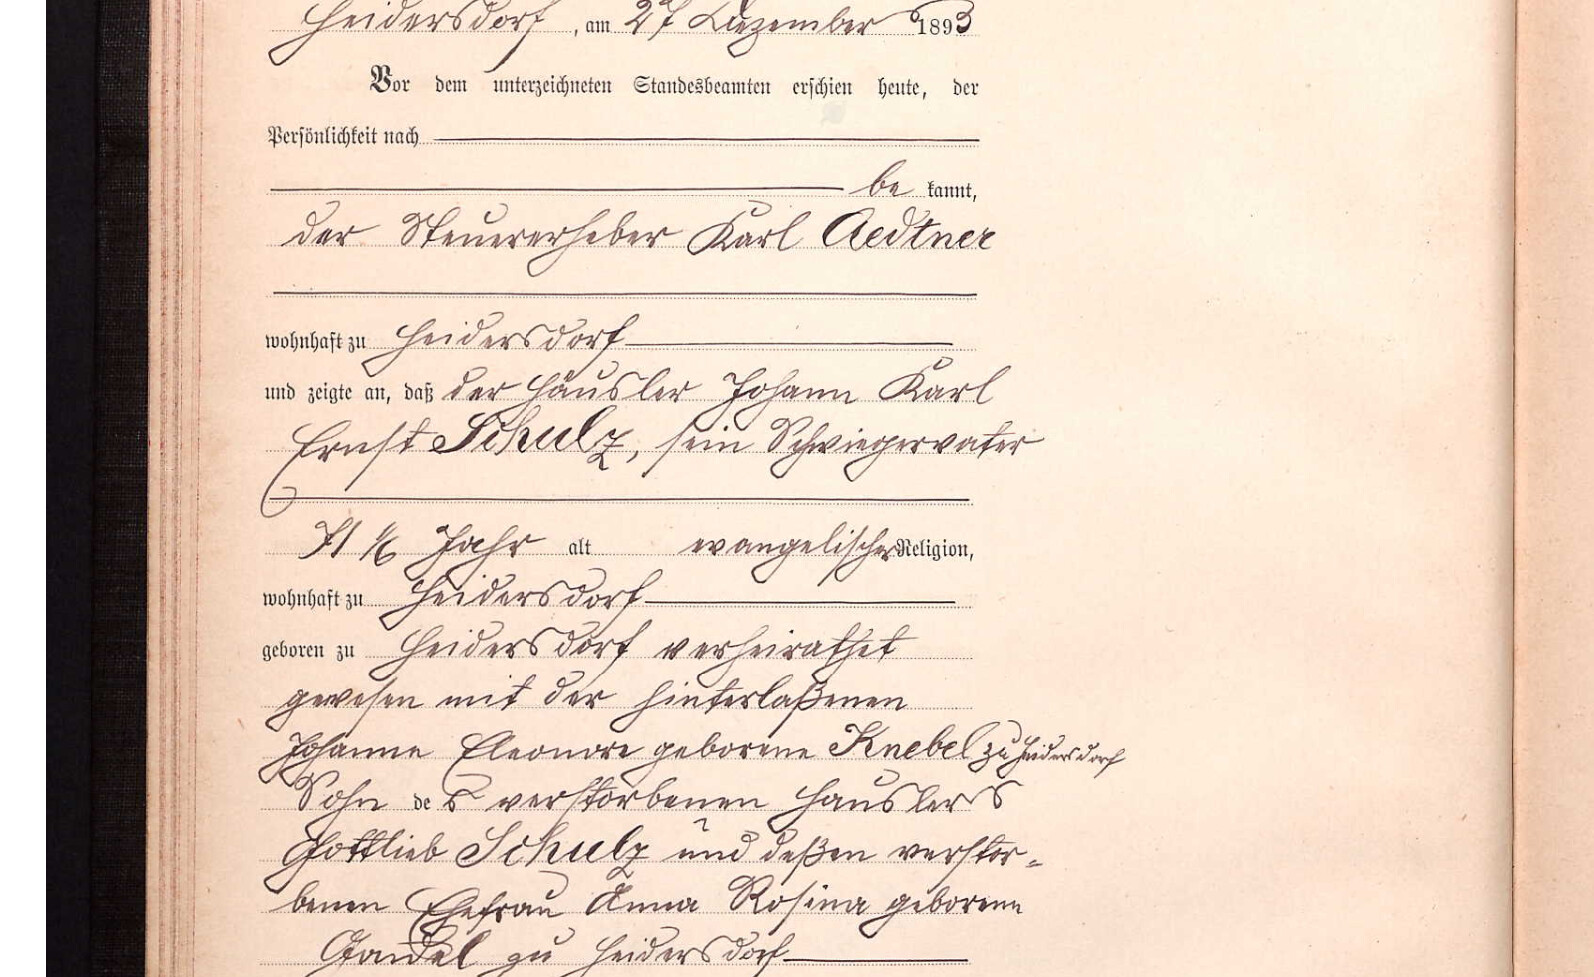 Heidersdorf, am 27 Dezember 1893
Vor dem unterzeichneten Standesbeamten erschien heute, der
Persönlichkeit nach
be kannt,
der Steuererheber Karl Aedtner
wohnhaft zu Heidersdorf
und zeigte an, daß der Häusler Johann Karl
Ernst Schulz, sein Schwiegervater
71 1/6 Jahr alt evangelischer Religion,
wohnhaft zu Heidersdorf
geboren zu Heidersdorf verheirathet
gewesen mit der hinterlaßenen
Johanne Eleonore geborene Knebel zu Heidersdorf
Sohn des verstorbenen Häuslers
Gottlieb Schulz und deßen verstor-
benen Ehefrau Anna Rosina geborene
zu Heidersdorf